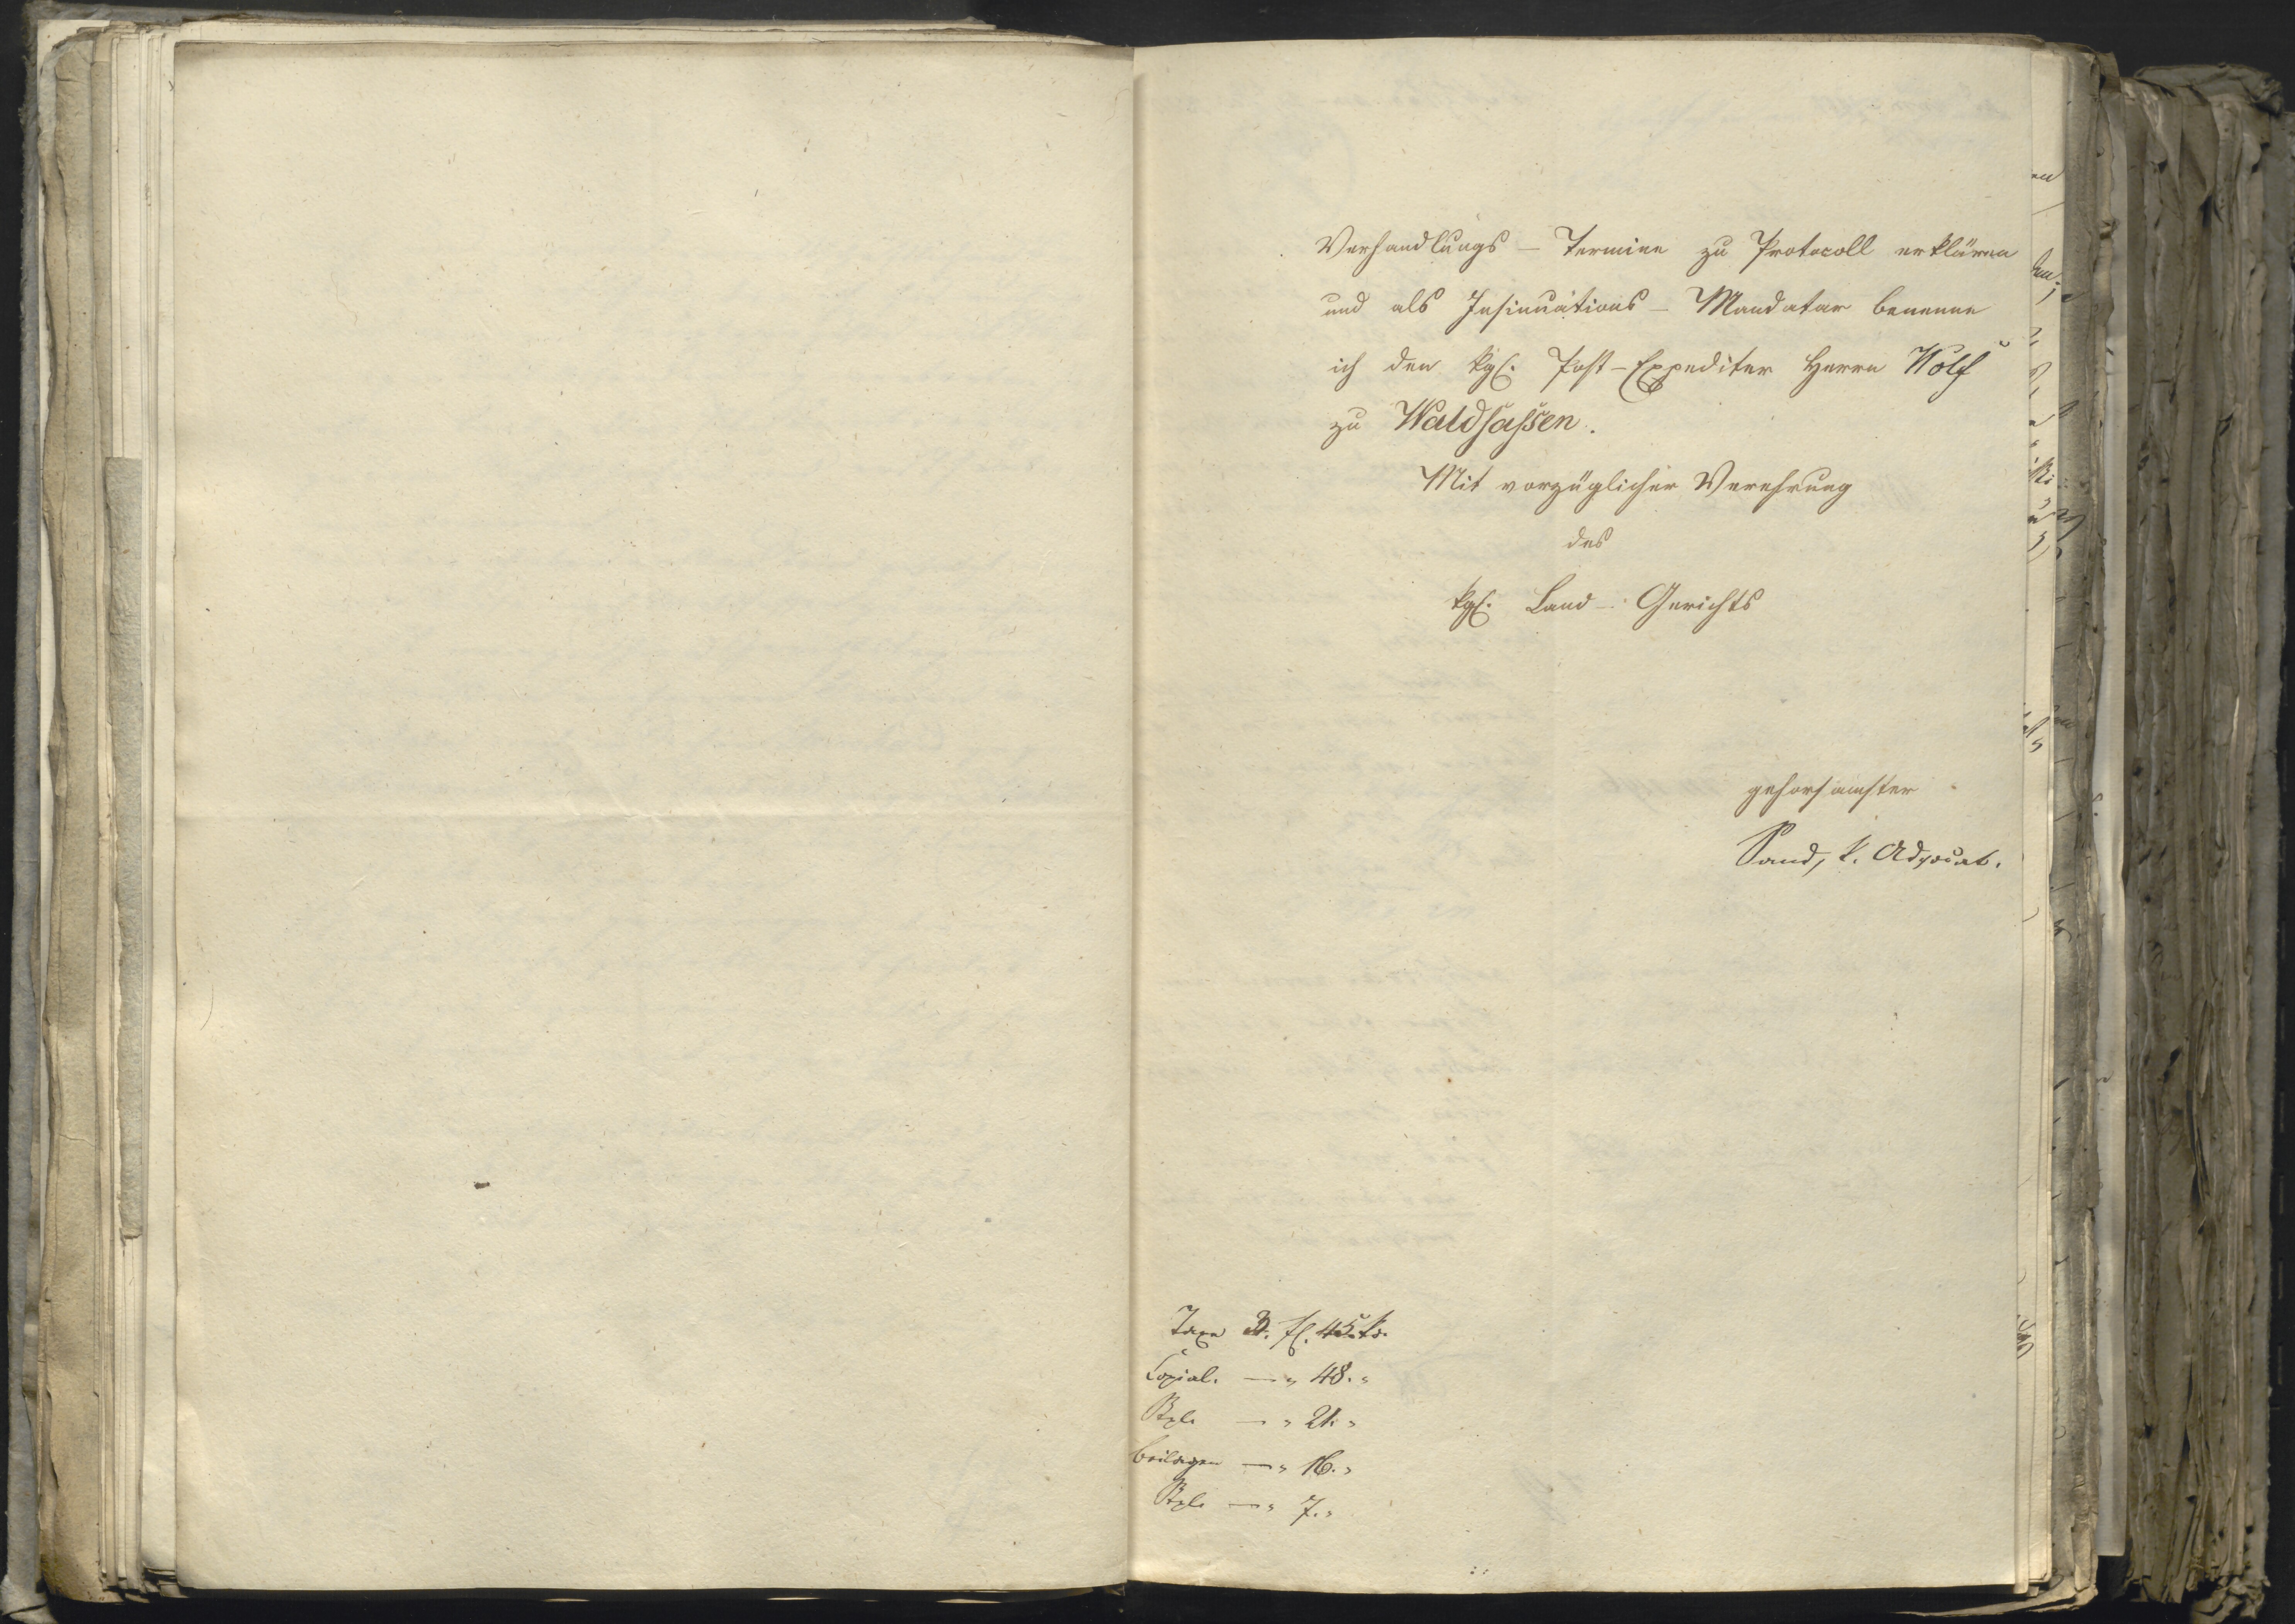 Verhandlungs - Termine zu Protocoll erklären
und als Insinuations - Mandatar benenne
ich den kgl. Post-Expeditor Herrn Wolf
zu Waldsaßen.
Mit vorzüglicher Verehrung
des
kgl. Land - Gerichts
gehorsamster
Sand, k. Advocat.
Taxe 3. fl. 45. kr.
Copial. — „ 48. „
Stpl. — „ 21. „
Beilagen — „ 16. „
Stpl. — „ 7. „